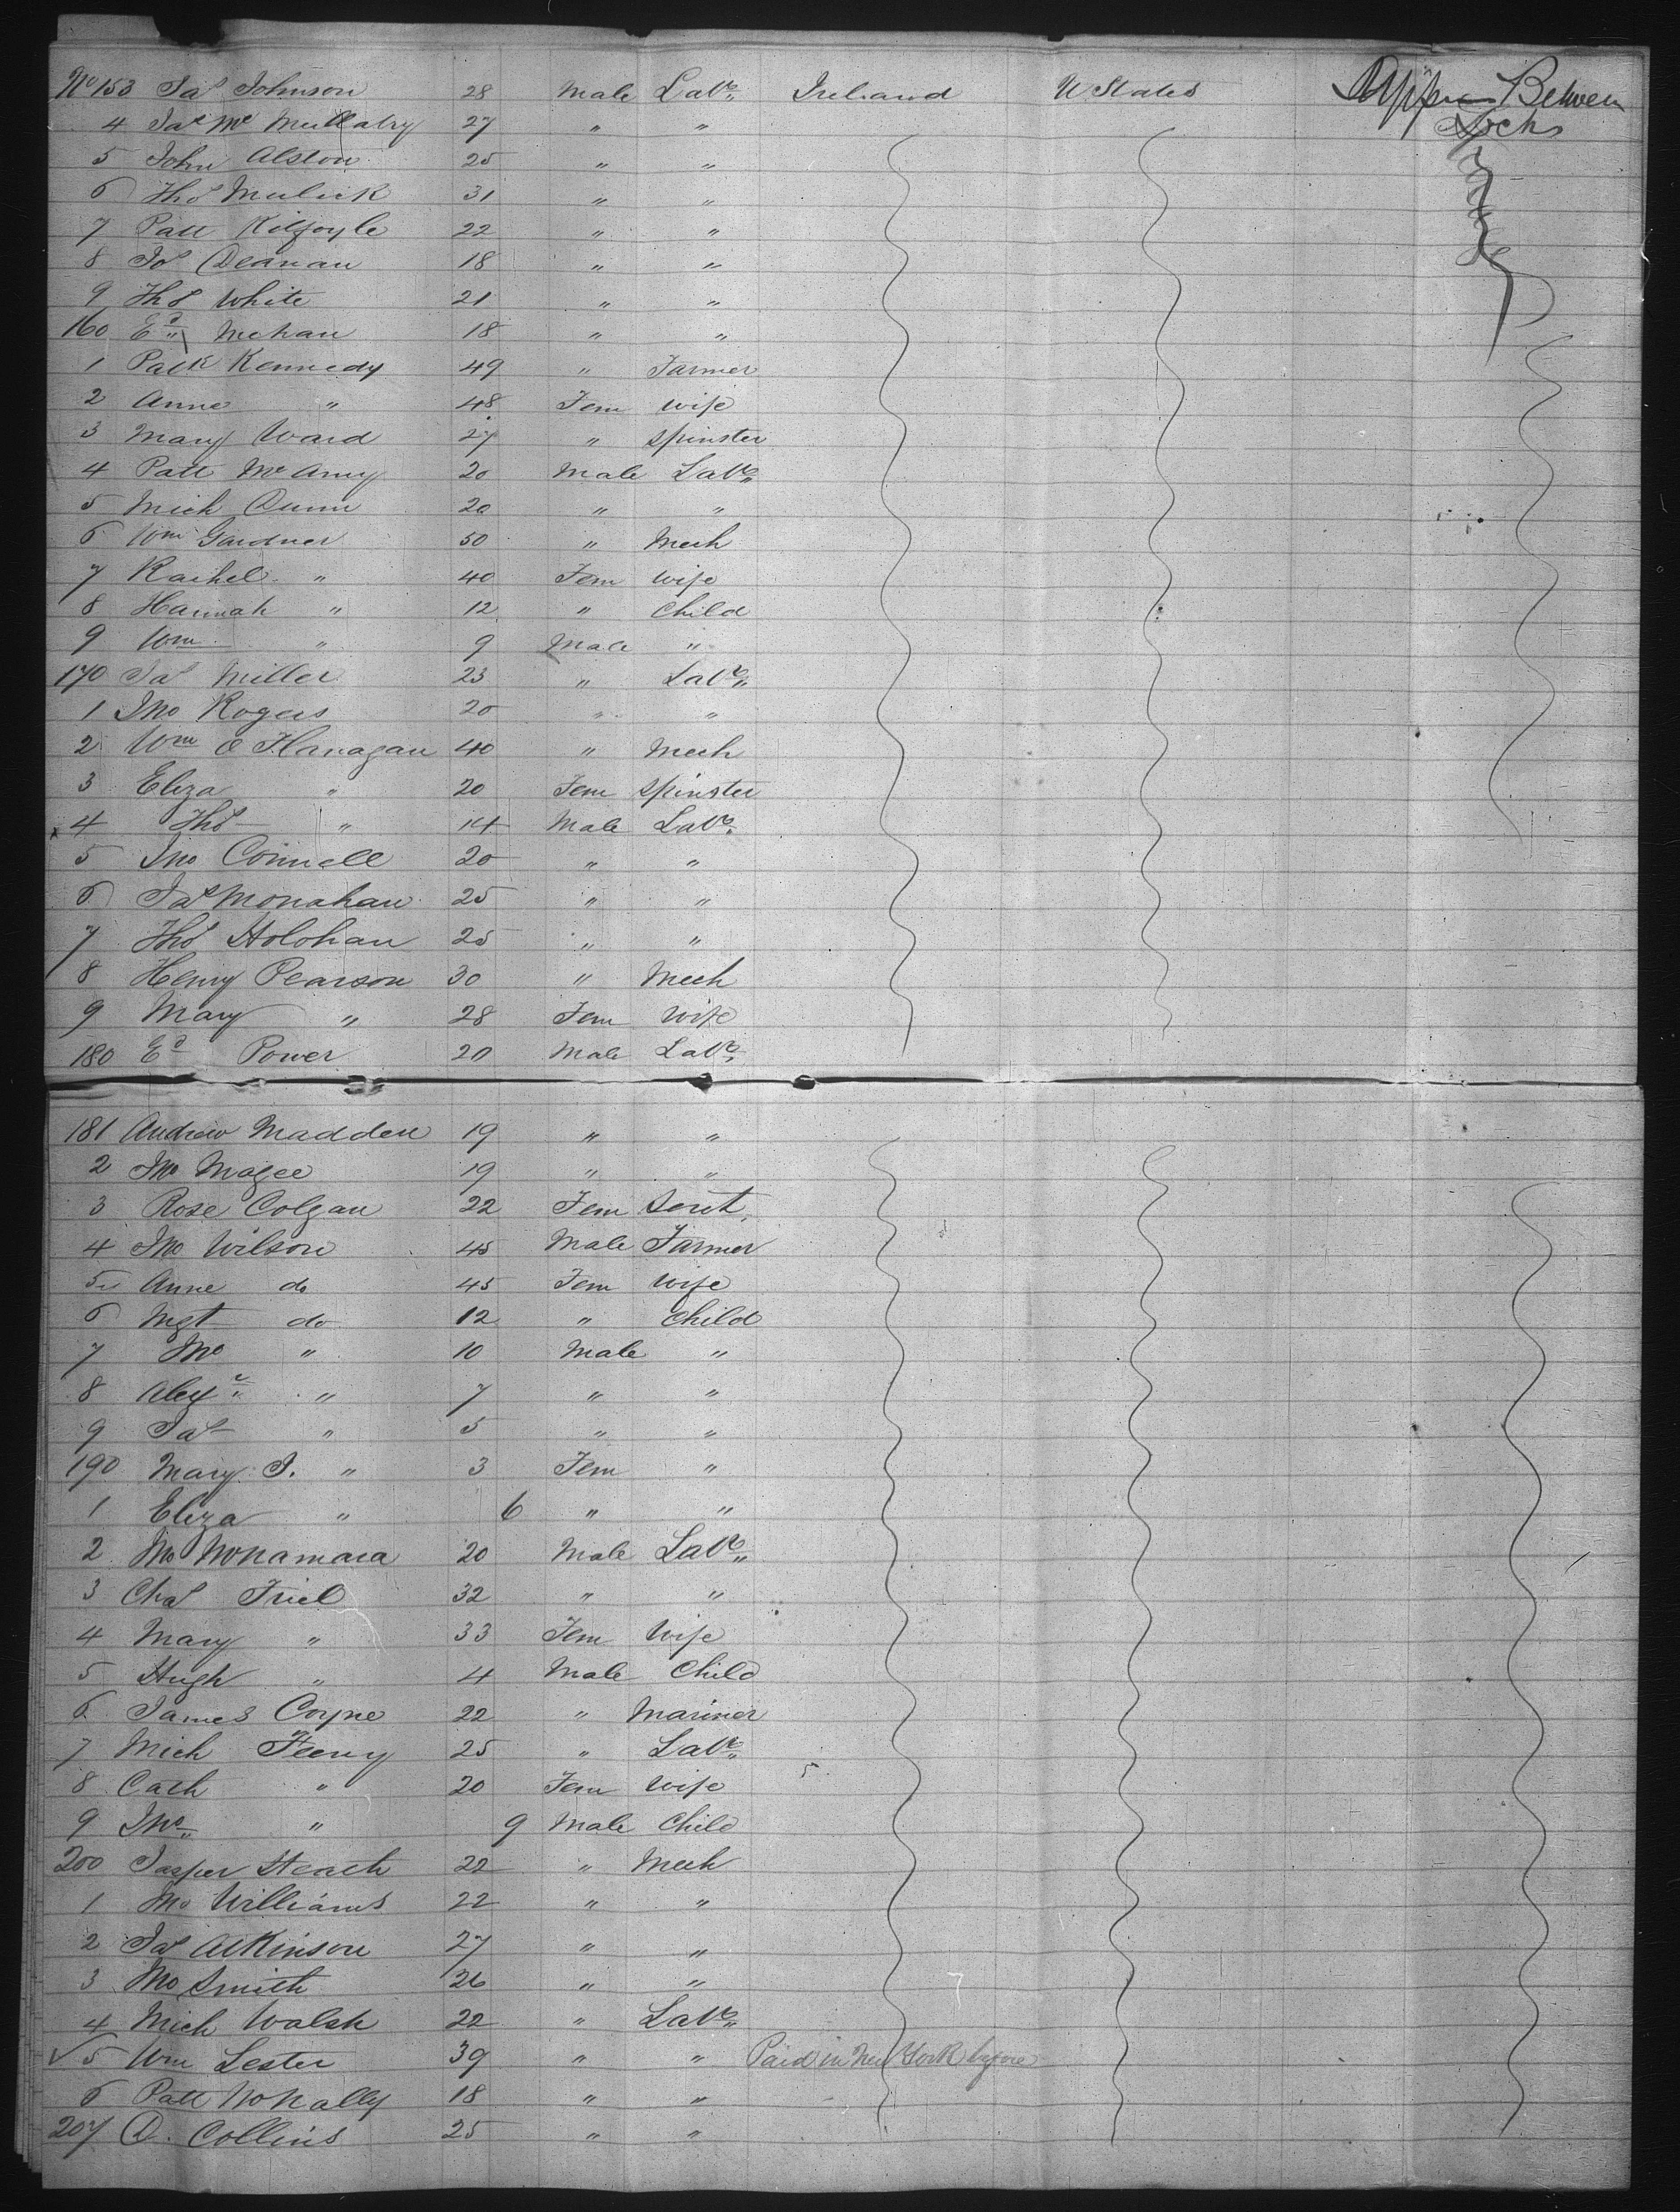 No 153 Jas Johnson 28 Male Labr Ireland U States Upper Between
Decks
4 Jas Mc 27 " "
5 John Alston 25 " "
6 Thos Mulick 31 " "
7 Patt Kilfoyle 22 " "
8 Jos 18 " "
9 Thos White 21 " "
160 Ed Mehan 18 " "
1 Patk Kennedy 49 " Farmer
2 Anne " 48 Fem Wife
3 Mary Ward 27 " Spinster
4 Patt 20 Male Labr
5 Mich Dunn 20 " "
6 Wm Gardner 50 " Mech
7 Rachel " 40 Fem Wife
8 Hannah " 12 " Child
9 Wm " 9 Male "
170 Jas Miller 23 " Labr
1 Jno Rogers 20 " "
2 Wm O Flanagan 40 " Mech
3 Eliza " 20 Fem Spinster
4 Thos " 14 Male Labr
5 Jno Connell 20 " "
6 Jas Monahan 25 " "
7 Thos Holohan 25 " "
8 Henry Pearson 30 " Mech
9 Mary " 28 Fem Wife
180 Ed Power 20 Male Labr
181 Andrew Madden 19 " "
2 Jno Magee 19 " "
3 Rose Colgan 22 Fem Servt
4 Jno Wilson 45 Male Farmer
5 Anne do 45 Fem Wife
6 Mgt do 12 " Child
7 Jno " 10 Male "
8 Alexr " 7 " "
9 Jas " 5 " "
190 Mary J. " 3 Fem "
1 Eliza " 6 " "
2 Jno McNamara 20 Male Labr
3 Chas Friel 32 " "
4 Mary " 33 Fem Wife
5 Hugh " 4 Male Child
6 James Coyne 22 " Mariner
7 Mich Feeny 25 " Labr
8 Cath " 20 Fem Wife
9 Jno " 9 Male Child
200 Jasper Heach 22 " Mech
1 Jno Williams 22 " "
2 Jas Atkinson 27 " "
3 Jno Smith 26 " "
4 Mich Walsh 22 " Labr
5 Wm Lester 39 " " Paid in New York before
6 Patt McNally 18 " "
207 D. Collins 25 " "